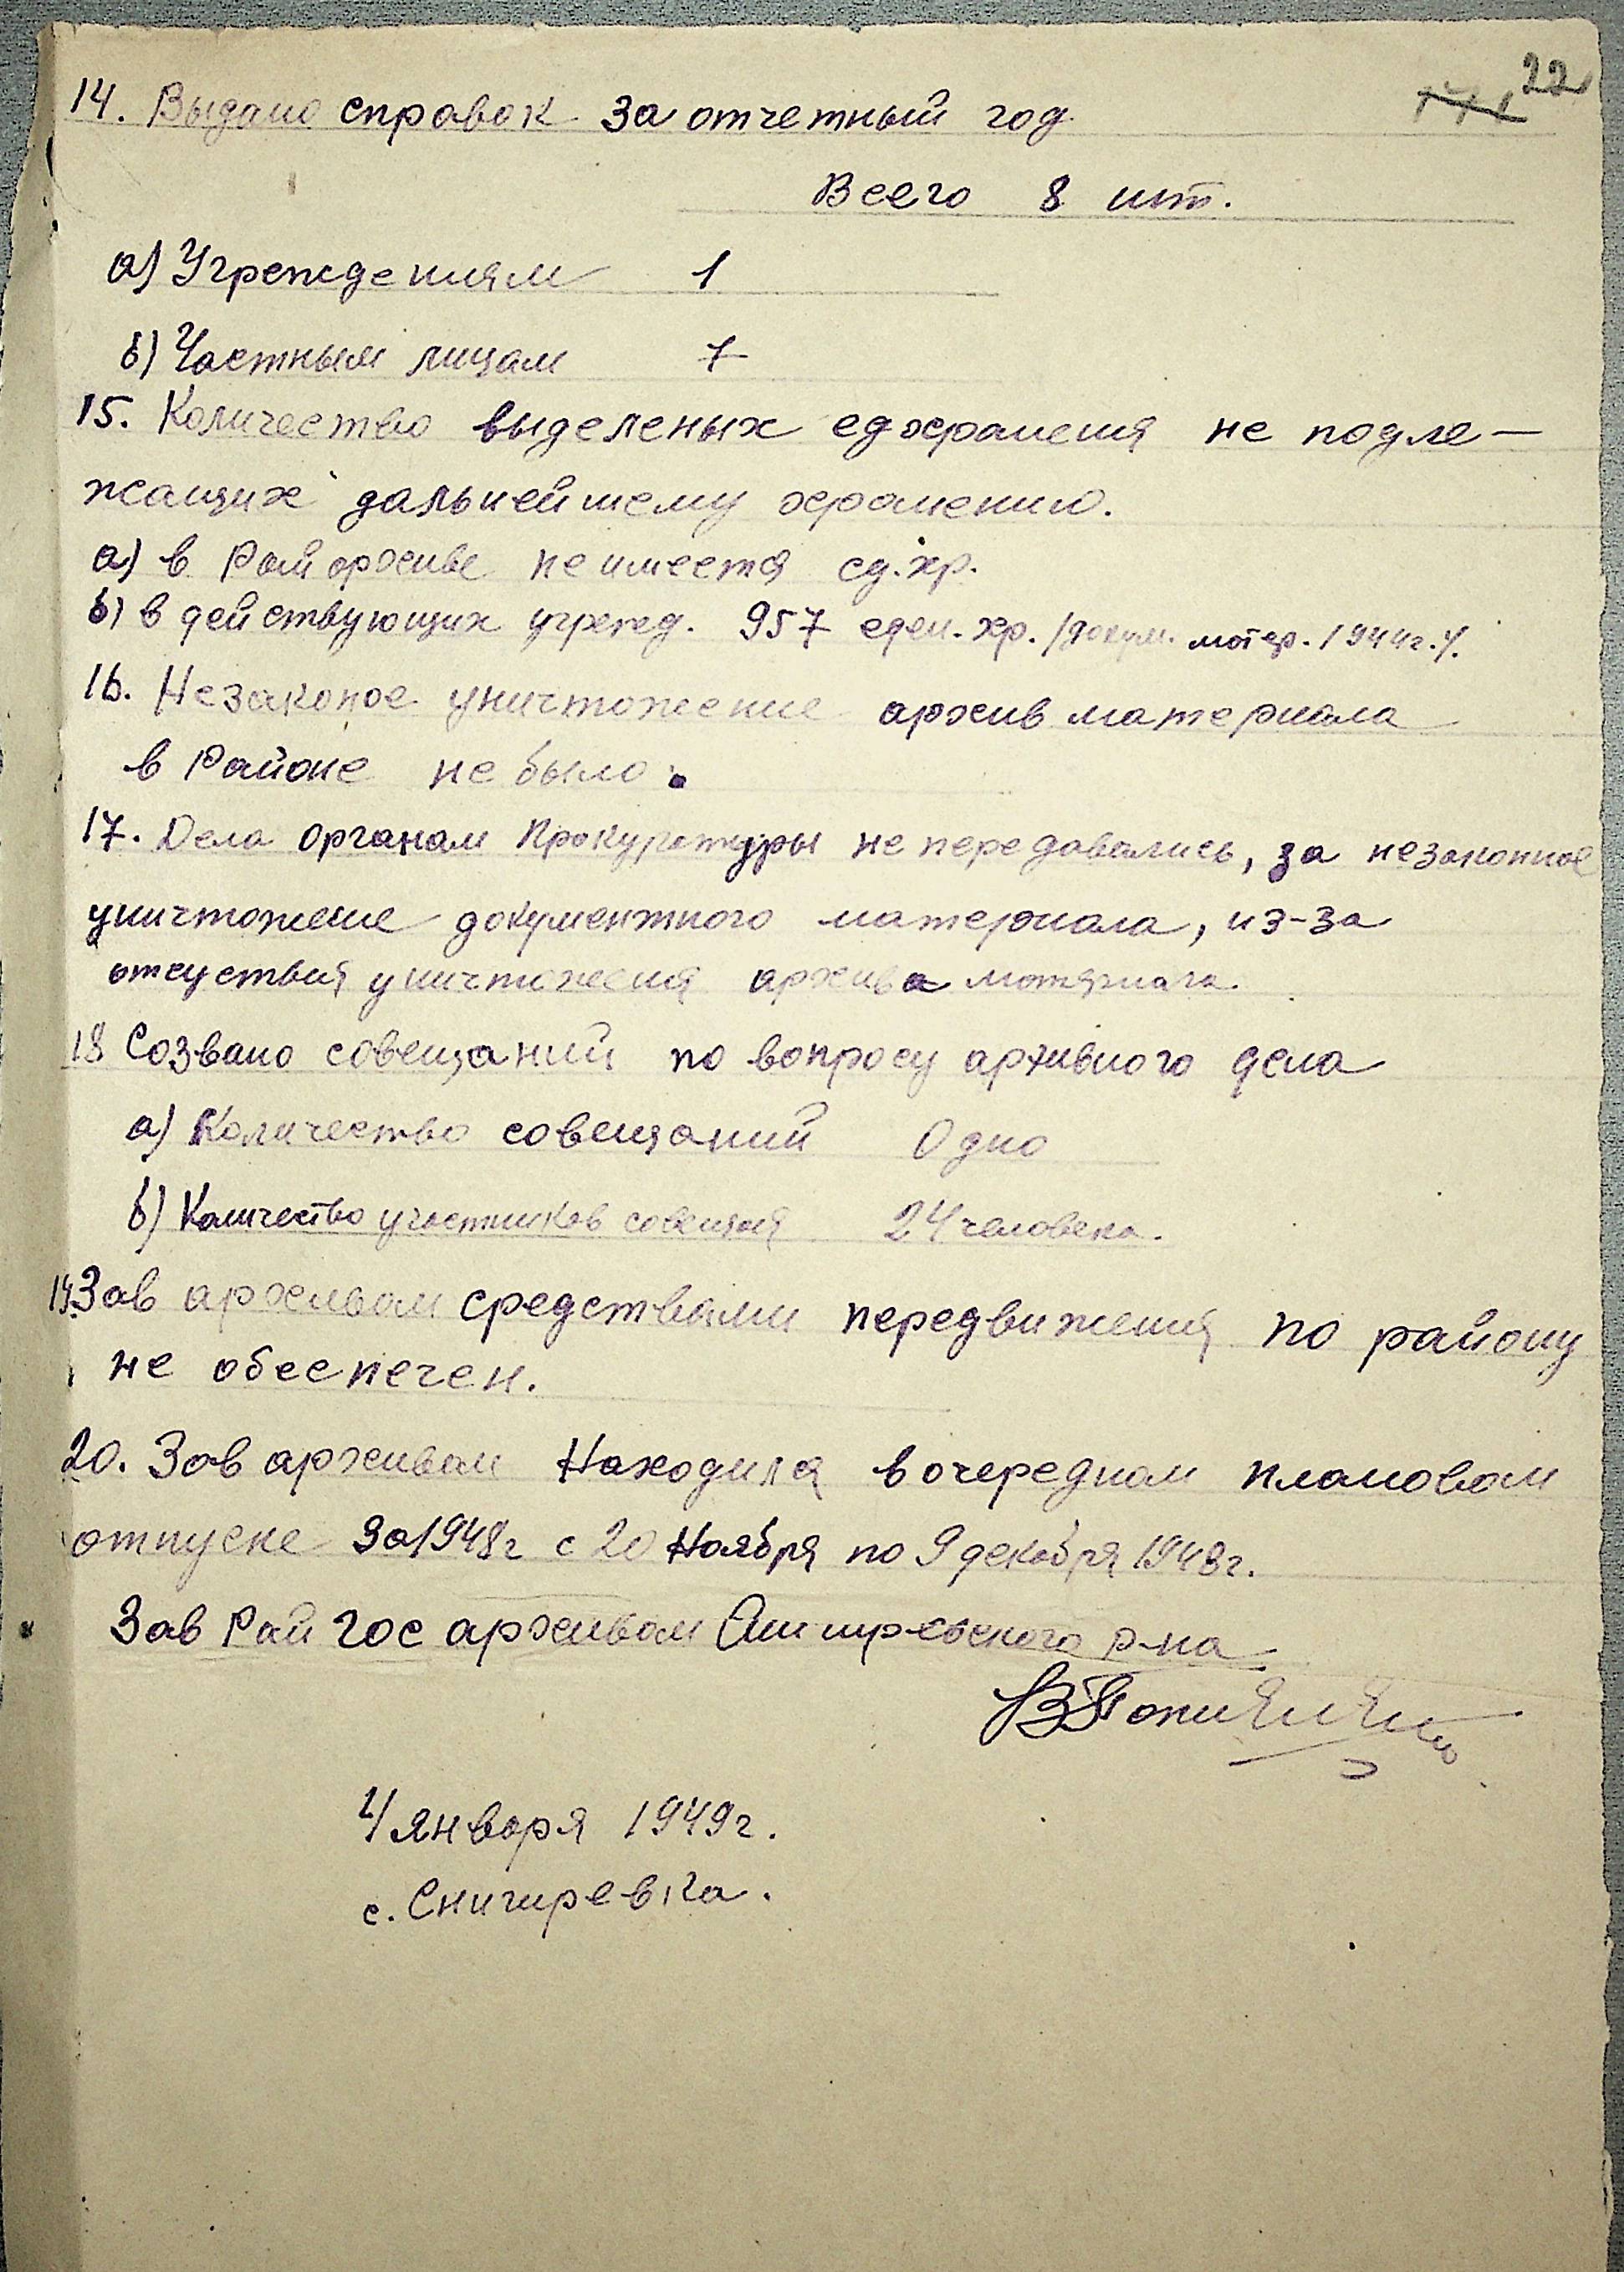 22
14. Выдано справок за отчетный год
Всего 8 шт.
а) Учреждениям 1
б) Частным лицам 7
15. Количество выделеных едхранения не подле-
жащих дальнейшему хранению.
а) в Райархиве не имеется ед.хр.
б) в действующих учрежд. 957 един. хр. /докум. матер. 1944г./.
16. Незаконое уничтожение архив материала
в Районе не было.
17. Дела органам Прокуратуры не передавались, за незаконное
уничтожение документного материала, из-за
отсуствия уничтожения архива материала.
18 Созвано совещаний по вопросу архивного дела
а) Количество совещаний Одно
б) Количество участников совещия 24 человека.
19. Зав архивом средствами передвижения по району
не обеспечен.
20. Зав архивом Находился в очередном плановом
отпуске за 1948г с 20 Ноября по 9 декабря 1948г.
Зав Рай гос архивом р-на
4/января 1949г.
с. Снигиревка.